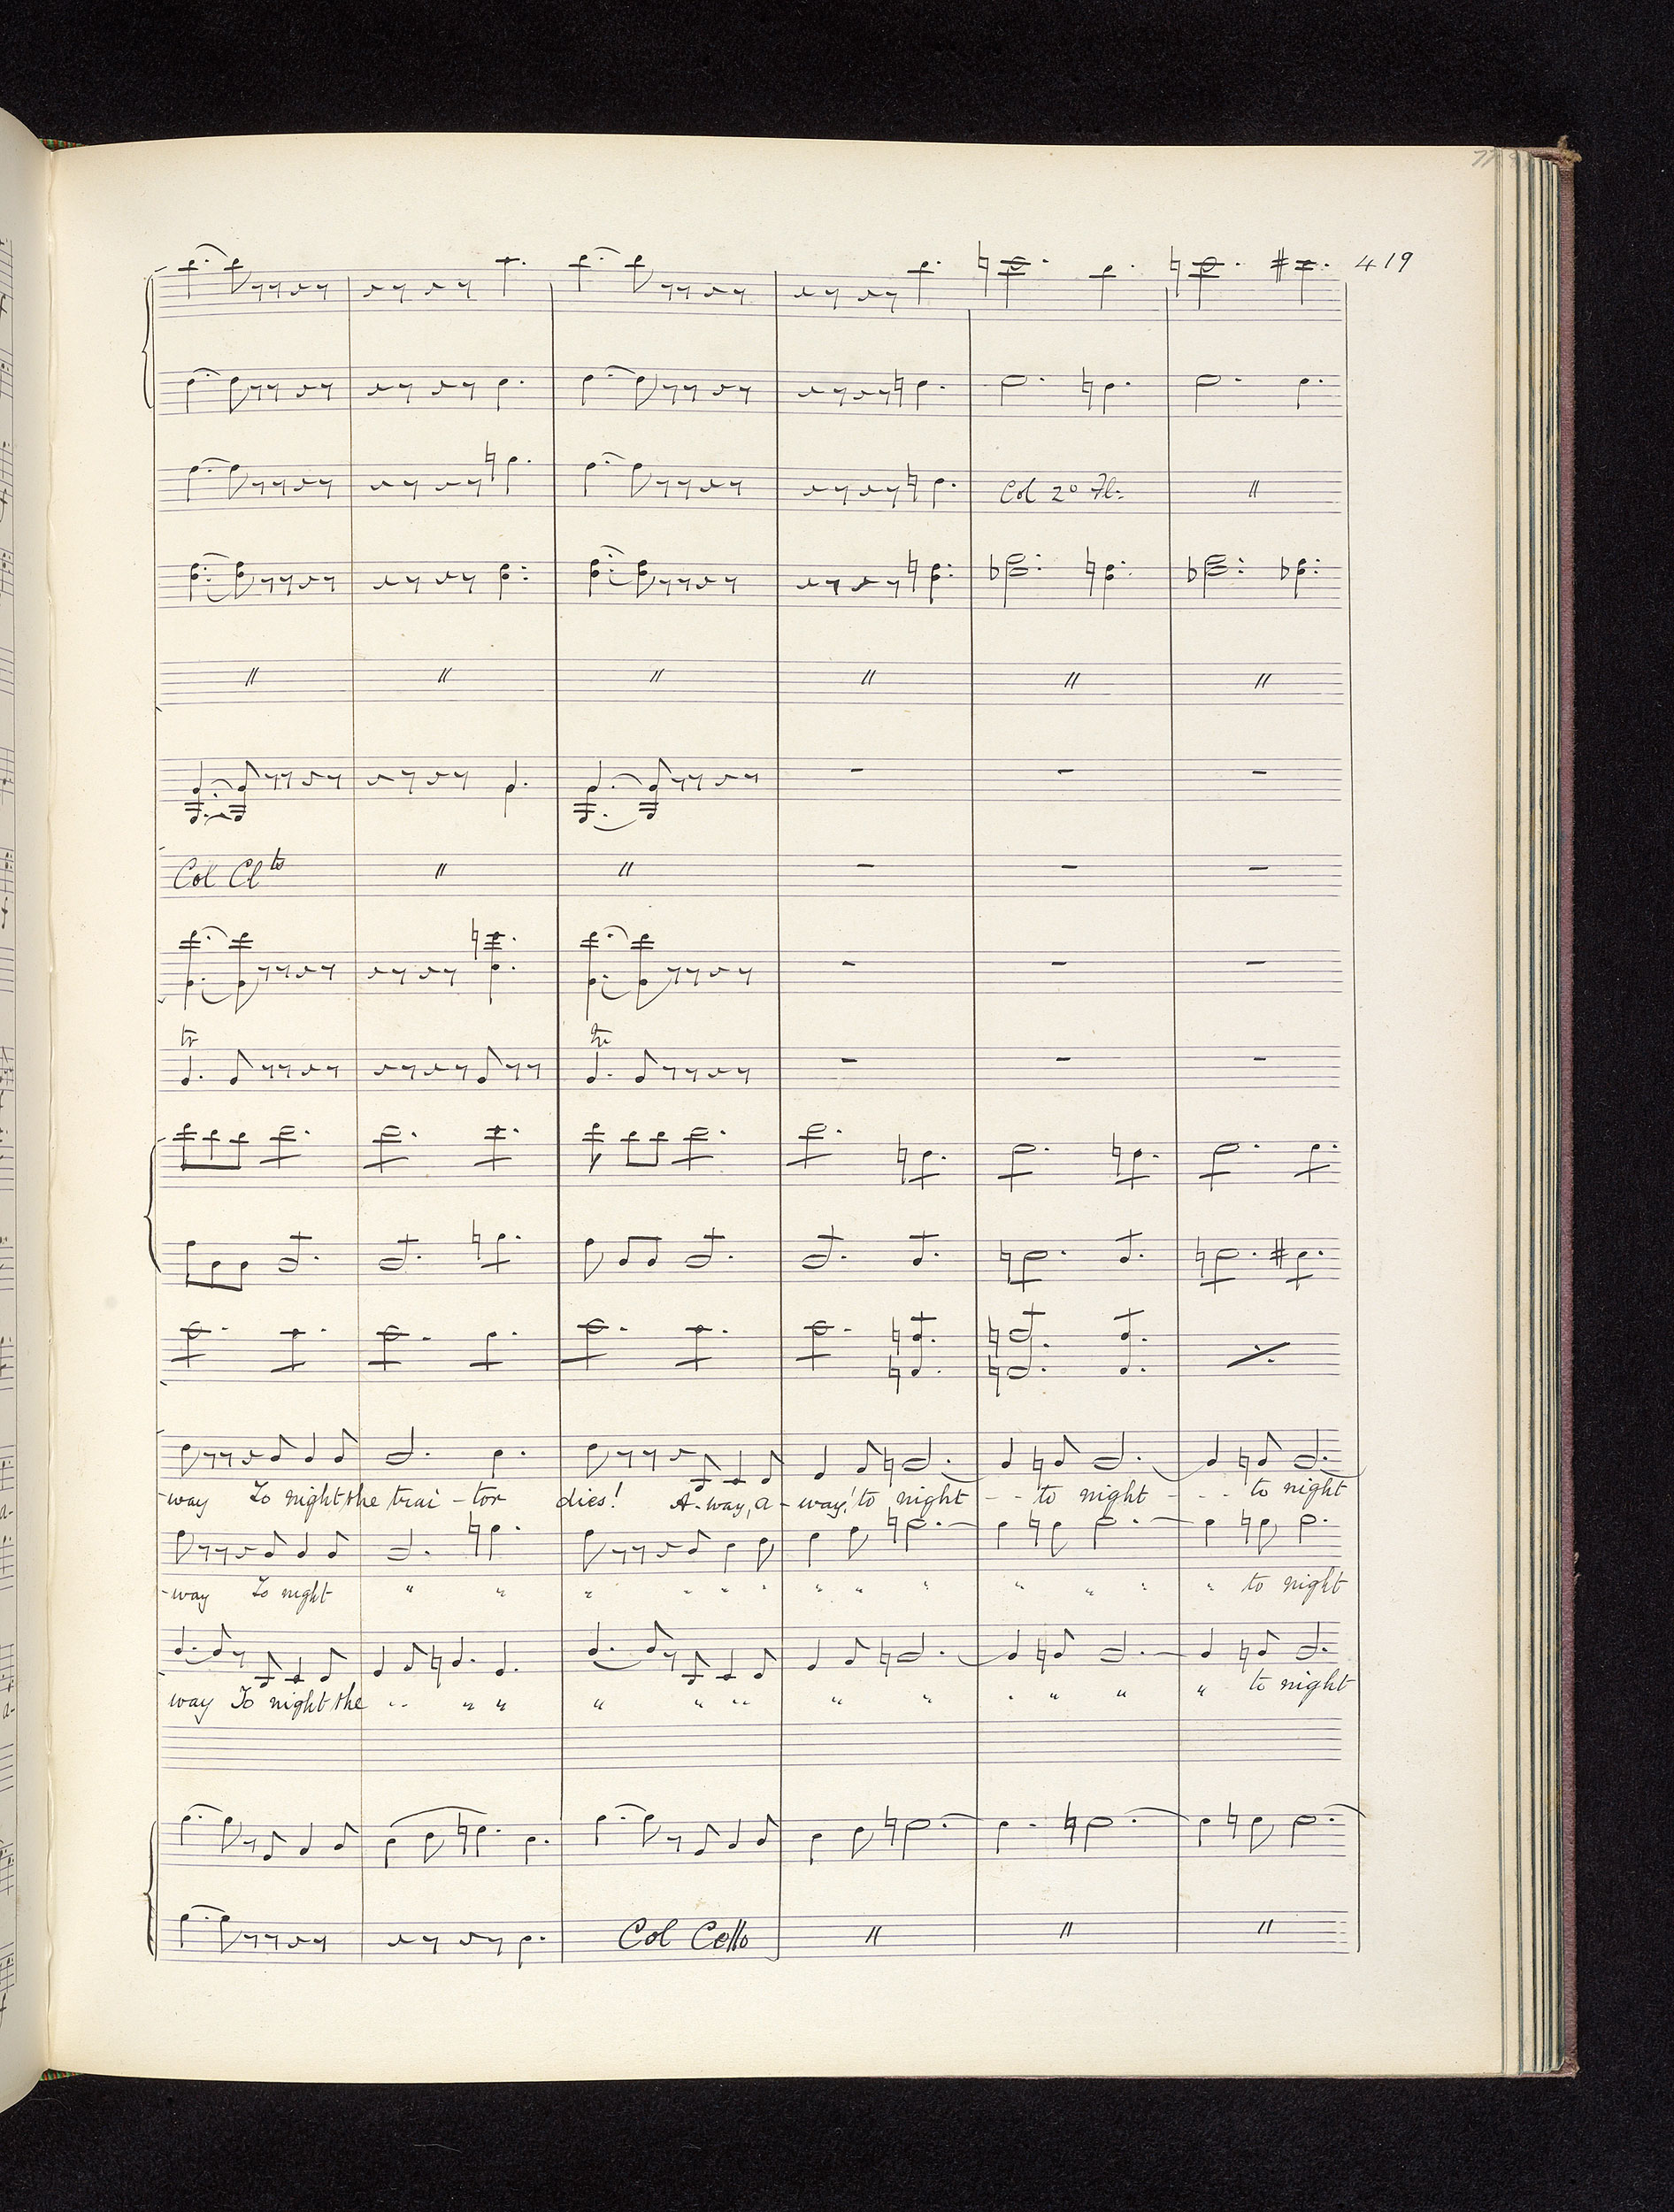 419
Col 2º Fl:
Col Clts
tr tr
-way To night the trai - tor dies! A-way, a - way! to night - - to night - - - to night
-way To night " " " " " " " " " " " " " to night
way To night the " " " " " " " " " " " " to night
Col Cello